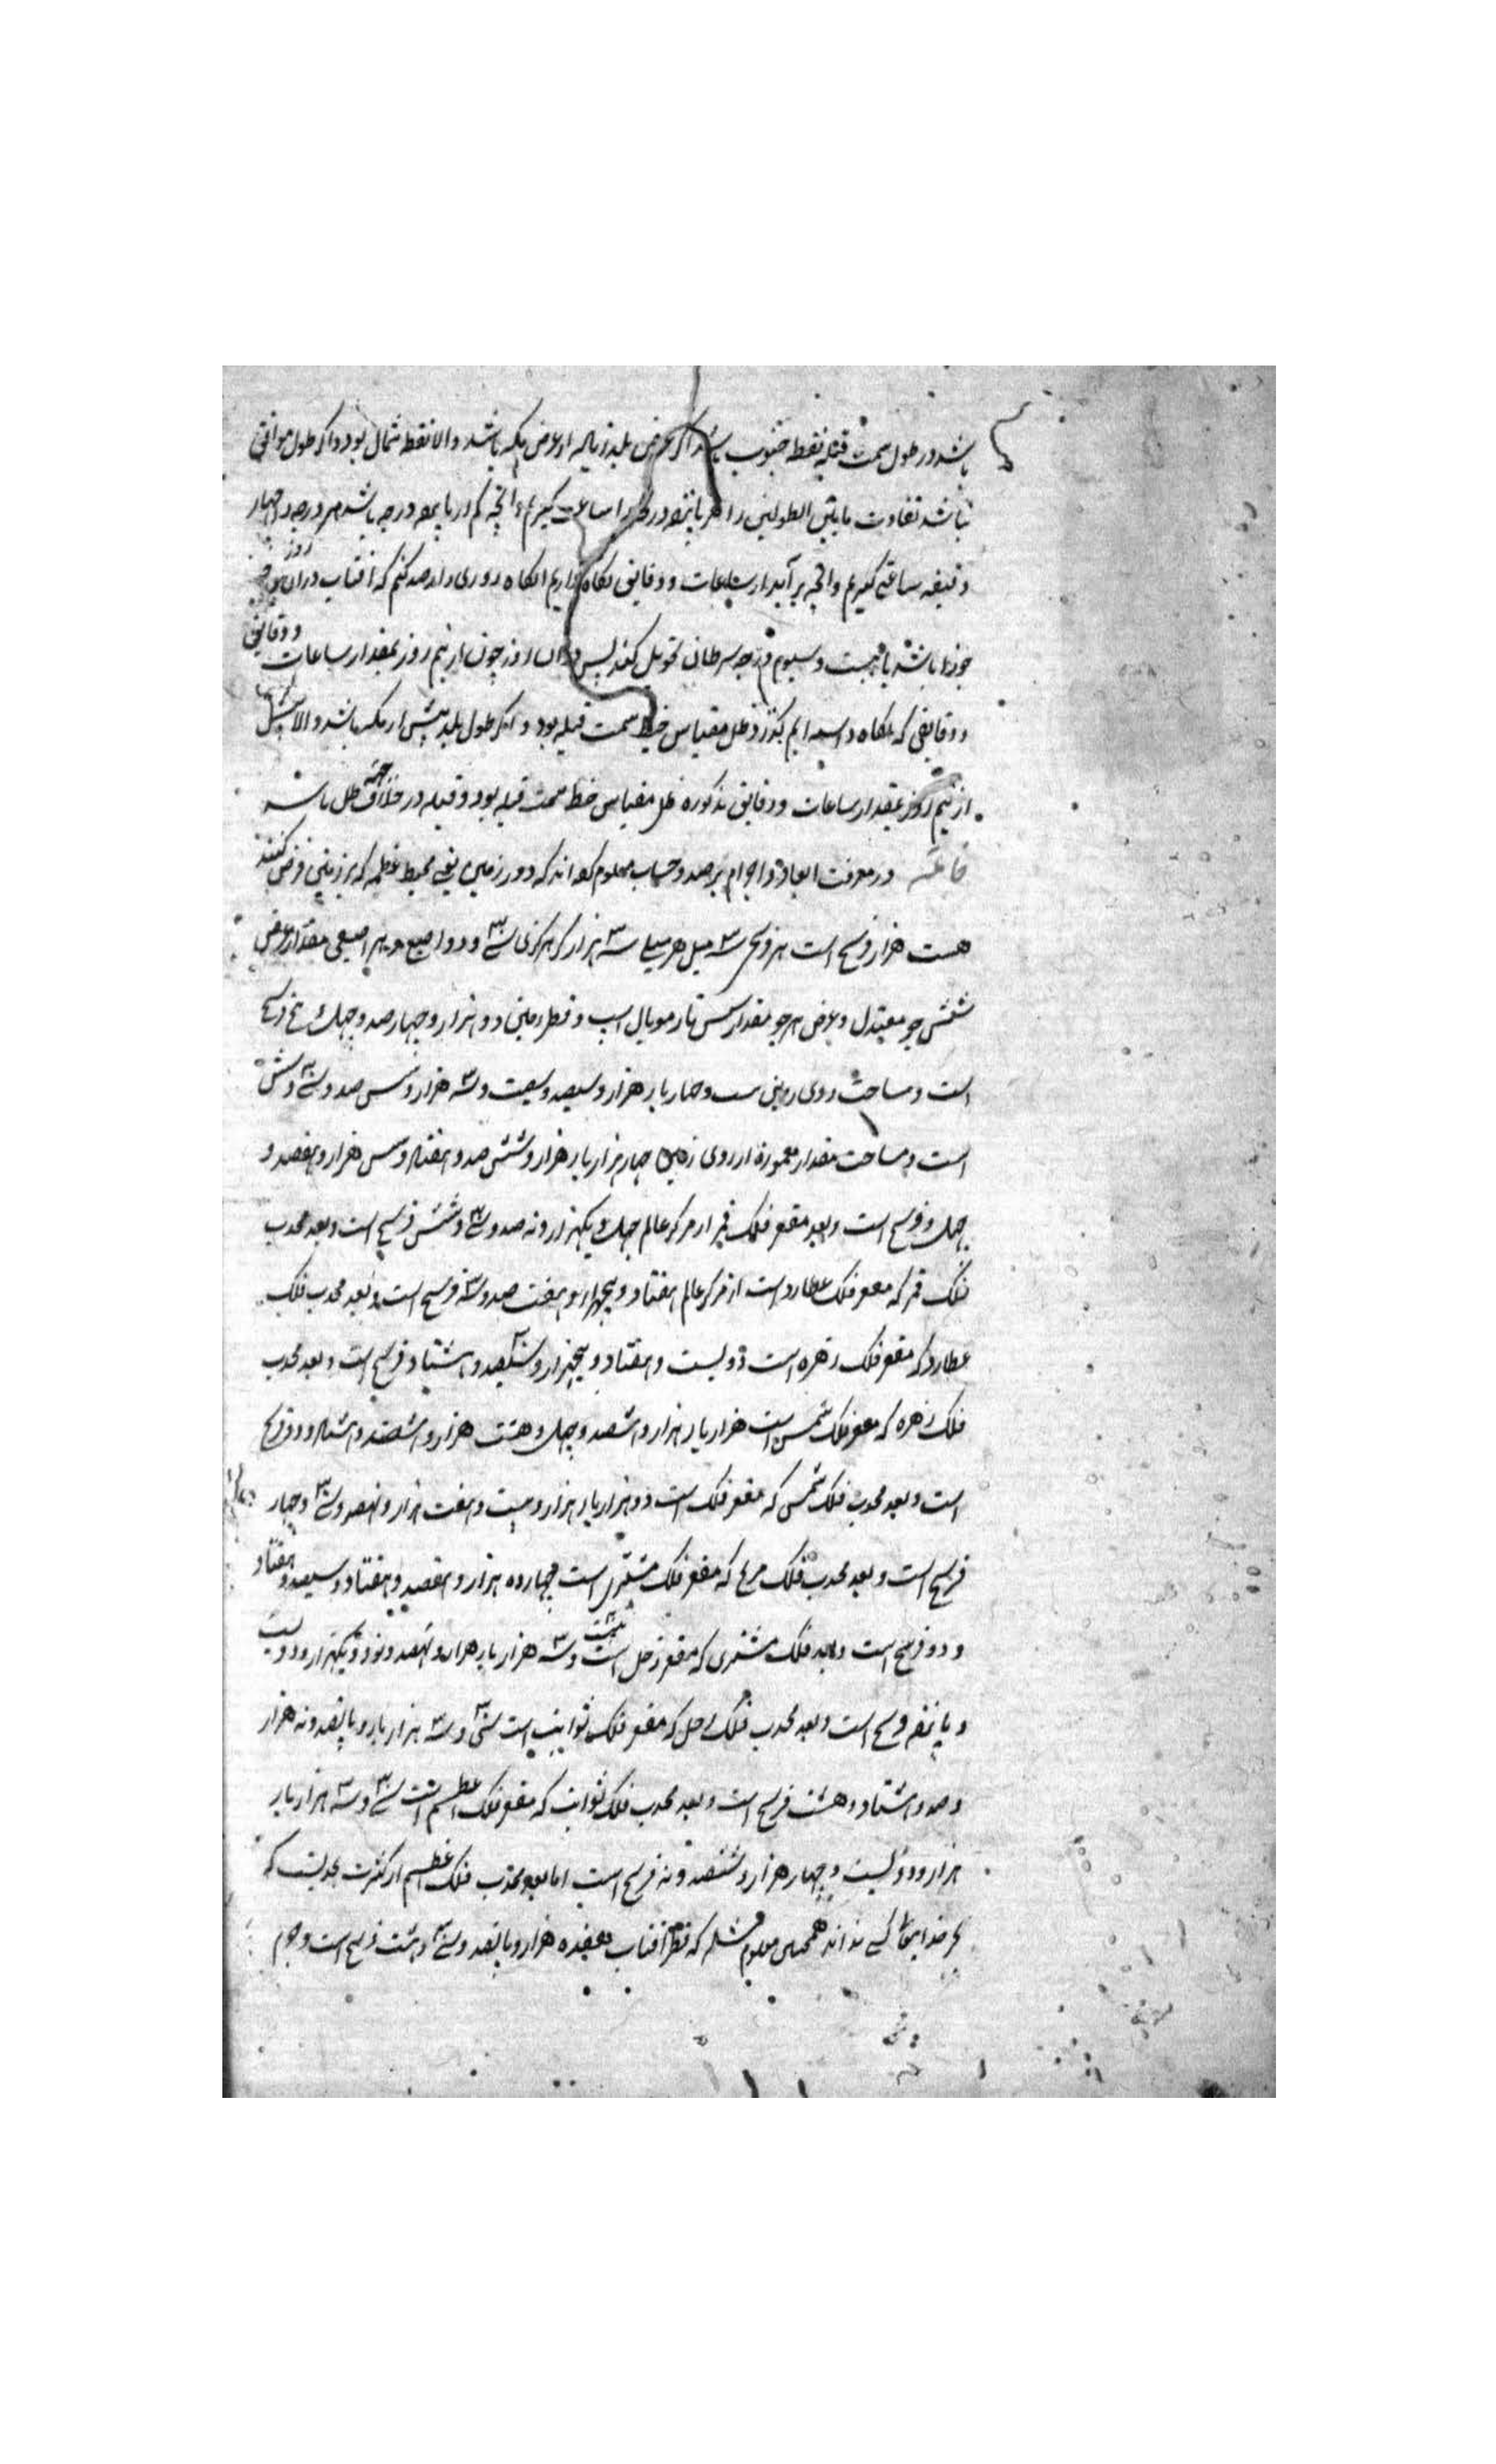 باشد در طول سمت قبله نقطه جنوب باشد اگر عرض بلد زیاده از عرض مکه باشد والا نقطه شمال بود و اگر طول موافق
نباشد تفاوت مابین الطولین را هر پانزده درجه را ساعت گیریم و آنچه کم از پانزده درجه باشد هر درجه را چهار
دقیقه ساعتی گیریم و آنچه برآید از ساعات و دقایق نگاه داریم آنگاه روزی را رصد کنیم که آفتاب در آن روز
جوزا باشد یا بیست و سیوم درجه سرطان تحویل کند پس در آن روز چون از نیم روز بمقدار ساعات و دقایق
و دقایقی که نگاه داشته ایم بگذرد ظل مقیاس خط سمت قبله بود و اگر طول بلد بیش از مکه باشد والا پیش
از نیم روز بمقدار ساعات و دقایق مذکوره ظل مقیاس خط سمت قبله بود و قبله در خلاف جهة ظل باشد
خاتمه در معرفت ابعاد و اجرام برصد و حساب معلوم کرده اند که دور زمین یعنی محیط عظیمه که بر زمین فرض کنند
هشت هزار فرسخ است هر فرسخی سه میل هر میلی سه هزار گز هر گزی سی و دو اصبع و هر اصبعی مقدار عرض
شش جو معتدل و عرض هر جو مقدار شش تار موی یال اسب و قطر زمین دو هزار و چهارصد و چهل و پنج فرسخ
است و مساحت روی زمین بیست و چهار بار هزار و سیصد و بیست و سه هزار و شش صد و سی و شش
است و مساحت مقدار معموره از روی زمین چهار هزار بار هزار و شش صد و هفتاد و شش هزار و هفصد و
چهل فرسخ است و بعد مقعر فلک قمر از مرکز عالم چهل و یکهزار و نه صد و سی و شش فرسخ است و بعد محدب
فلک قمر که مقعر فلک عطارد است از مرکز عالم هفتاد و پنجهزار و هفت صد و سه فرسخ است و بعد محدب فلک
عطارد که مقعر فلک زهره است دویست و هفتاد و پنجهزار و سیصد و هشتاد فرسخ است و بعد محدب
فلک زهره که مقعر فلک شمس است هزار بار هزار و هشصد و چهل و هشت هزار و هشتصد و هشتاد و دو فرسخ
است و بعد محدب فلک شمس که مقعر فلک است دو هزار بار هزار و بیست و هفت هزار و نهصد و سی و چهار
فرسخ است و بعد محدب فلک مریخ که مقعر فلک مشتری است چهارده هزار و هفصد و هفتاد و سیصد و هفتاد
و دو فرسخ است و بعد فلک مشتری که مقعر زحل است بیست و سه هزار بار هزار و نهصد و نود و یکهزار و دویست
و پانزده فرسخ است و بعد محدب فلک زحل که مقعر فلک ثوابت است سی و سه هزار بار و پانصد و نه هزار
و صد و هشتاد و هشت فرسخ است و بعد محدب فلک ثوابت که مقعر فلک اعظم است سی و سه هزار بار
هزار و دویست و چهار هزار و ششصد و نه فرسخ است اما بعد محدب فلک اعظم از کثرت بحدیست که
بجز خدایتعالی کسی نداند همچنین معلوم شده که قطر آفتاب هفده هزار و پانصد و سی و هشت فرسخ است و جرم